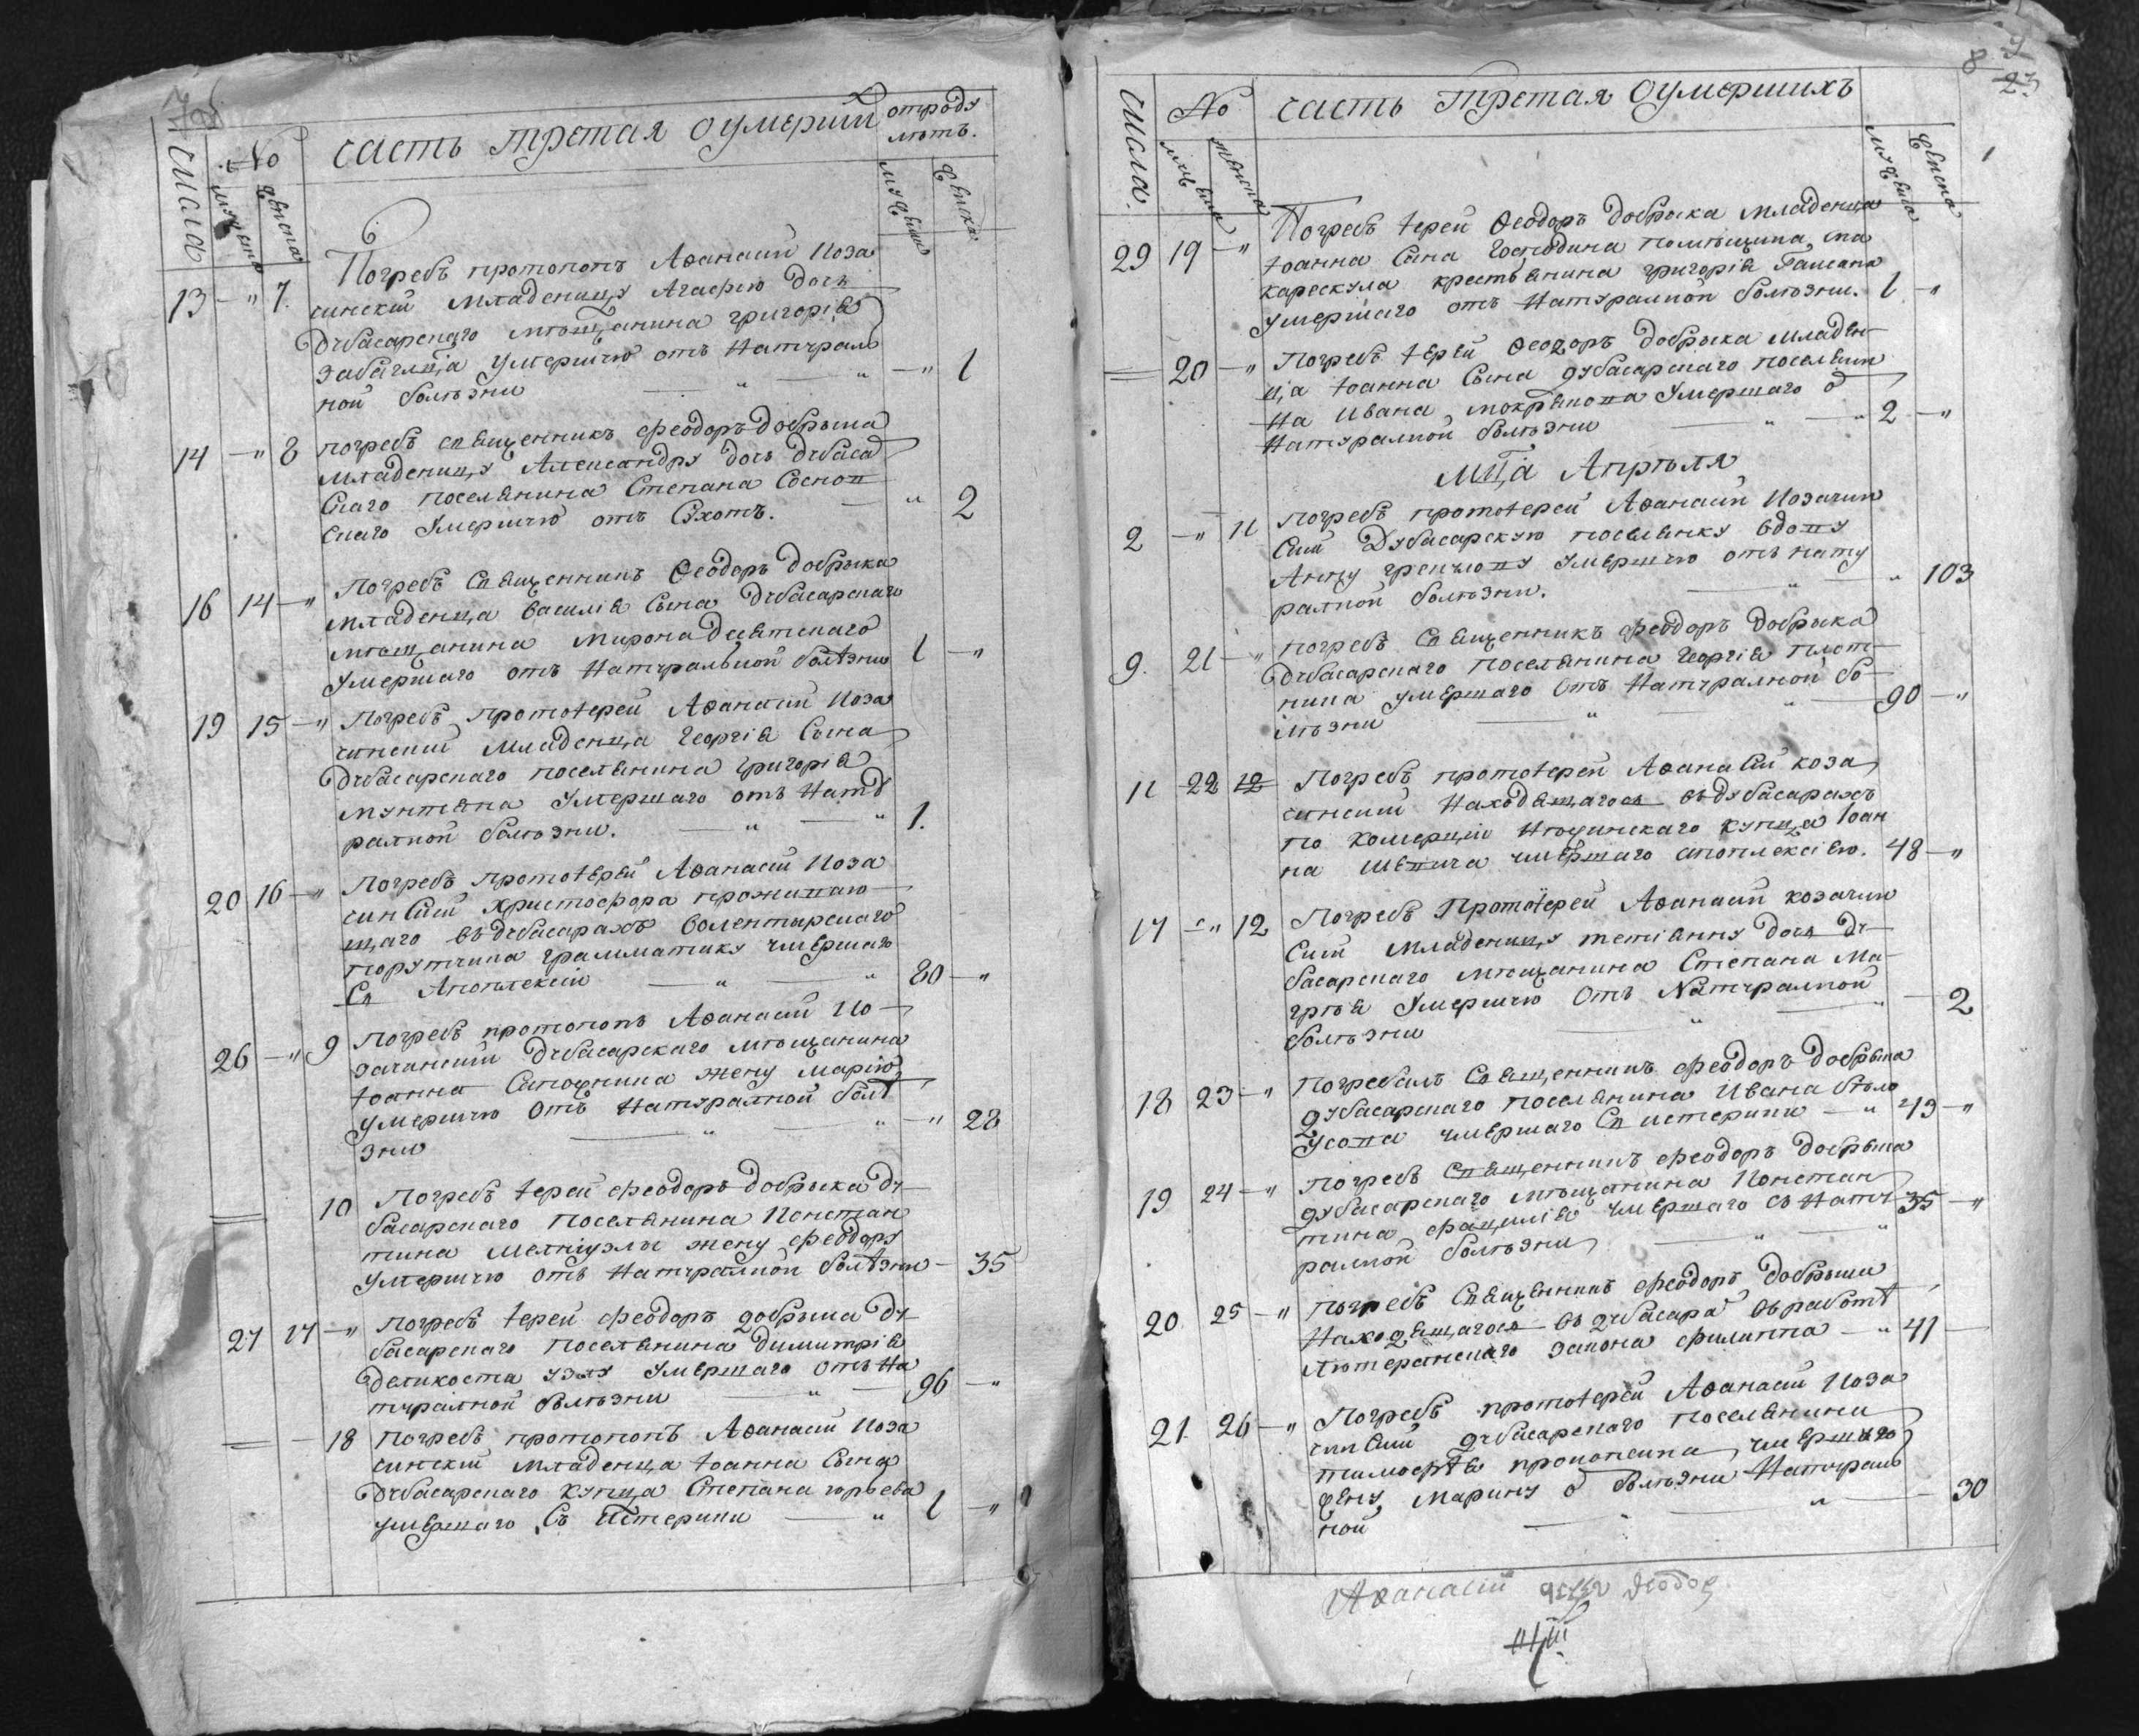 часть третая оумерши
отроду
лѣтъ.
числа
No
мужеска
женска
мужеска
женска
13 - " 7. Погребъ протопопъ Аѳанасій Коза
чинскій младеницу Агафію дочь
Дубасарскаго мѣщанина Григорія
умершую отъ натурал
ной болѣзни — " — " — " 1
14 - " 8 погребъ священникъ Феодоръ Добрыка
младеницу Александру дочь Дубаса
скаго поселянина Степана
скаго умершую отъ Сухотъ. — " 2
16 14 - " Погребъ Священникъ Ѳеодоръ Добрыка
младенца Василія Сына Дубасарскаго
мѣщанина Мирона
умершаго отъ натуральной болѣзни 1 - "
19 15 - " Погребъ протоіерей Аѳанасій Коза
чинскій младенца Георгія Сына
Дубасарскаго поселянина Григорія
Мунтяна умершаго отъ нату
ралной болѣзни. — " — " 1.
20 16 - " Погребъ протоіерей Аѳанасій Коза
чинскій Христофора проживаю
щаго въ Дубасарахъ волентырскаго
порутчика Граматику умершаго
Съ Апоплексіи — " — " 80 - "
26 - " 9 Погребъ протопопъ Аѳанасій Ко
зачинскій Дубасарскаго мѣщанина
Іоанна жену Марію
умершую отъ натуралной болѣ
зни — " — " - " 28
= 10 Погребъ іерей Феодоръ Добрыка Ду
басарскаго поселянина Констан
тина жену Феодору
умершую отъ натуралной болѣзни - 35
27 17 - " Погребъ іерей Феодоръ Добрыка Ду
басарскаго поселянина Димитрія
умершаго отъ на
туралной болѣзни " — 96 - "
= - 18 Погребъ протопопъ Аѳанасій Коза
чинскій младенца Іоанна Сына
Дубасарскаго купца Степана Юрьева
умершаго Съ Истерики — " 1 - "
8
23
числа.
No
часть третая оумершихъ
мужеска
женска
мужеска
женска
29 19 - " Погребъ іерей Ѳеодоръ Добрыка младенца
Іоанна Сына Господина помѣщика
крестьянина Григорія
умершаго отъ натуралной болѣзни. 1 - "
= 20 - " Погребъ іерей Ѳеодоръ Добрыка младен
ца Іоанна Сына Дубасарскаго поселяни
на Ивана умершаго ѿ
натуралной болѣзни — " — " 2 - "
Мца Апрѣля
2 - " 11 Погребъ протоіерей Аѳанасій Козачин
скій Дубасарскую поселянку вдову
Анну умершую отъ нату
ралной болѣзни. — " — " 103
9. 21 - " Погребъ Священникъ Феодоръ Добрыка
Дубасарскаго поселянина Георгія Плот
ника умершаго отъ натуралной бо
лѣзни — " — " — 90 - "
11 22 12 Погребъ протоіерей Аѳанасій Коза
чинскій находящагося въ Дубасарахъ
по комерціи Нѣжинскаго купца Іоан
на умершаго апоплексіею. 48 - "
17 - " 12 Погребъ Протоіерей Аѳанасій Козачин
скій младеницу Тетіанну дочь Ду
басарскаго мѣщанина Степана Ма
умершую отъ Натуралной
болѣзни — " — " - 2
18 23 - " Погребалъ Священникъ Феодоръ Добрыка
Дубасарскаго поселянина Ивана Бѣло
усова умершаго Съ истерики - " 43 - "
19 24 - " Погребъ Священникъ Феодоръ Добрыка
Дубасарскаго мѣщанина Констан
тина умершаго съ нату
ралной болѣзни — " — " 35 - "
20 25 - " Погребъ Священникъ Феодоръ Добрыка
находящагося въ Дубасара въ работѣ
лютеранскаго закона Филиппа - " 41 -
21. 26 - " Погребъ протоіерей Аѳанасій Коза
чинскій Дубасарскаго поселянина
Тимофѣя умершую
жену Марину ѿ болѣзни натурал
ной — " — " — 30
Аѳанасій